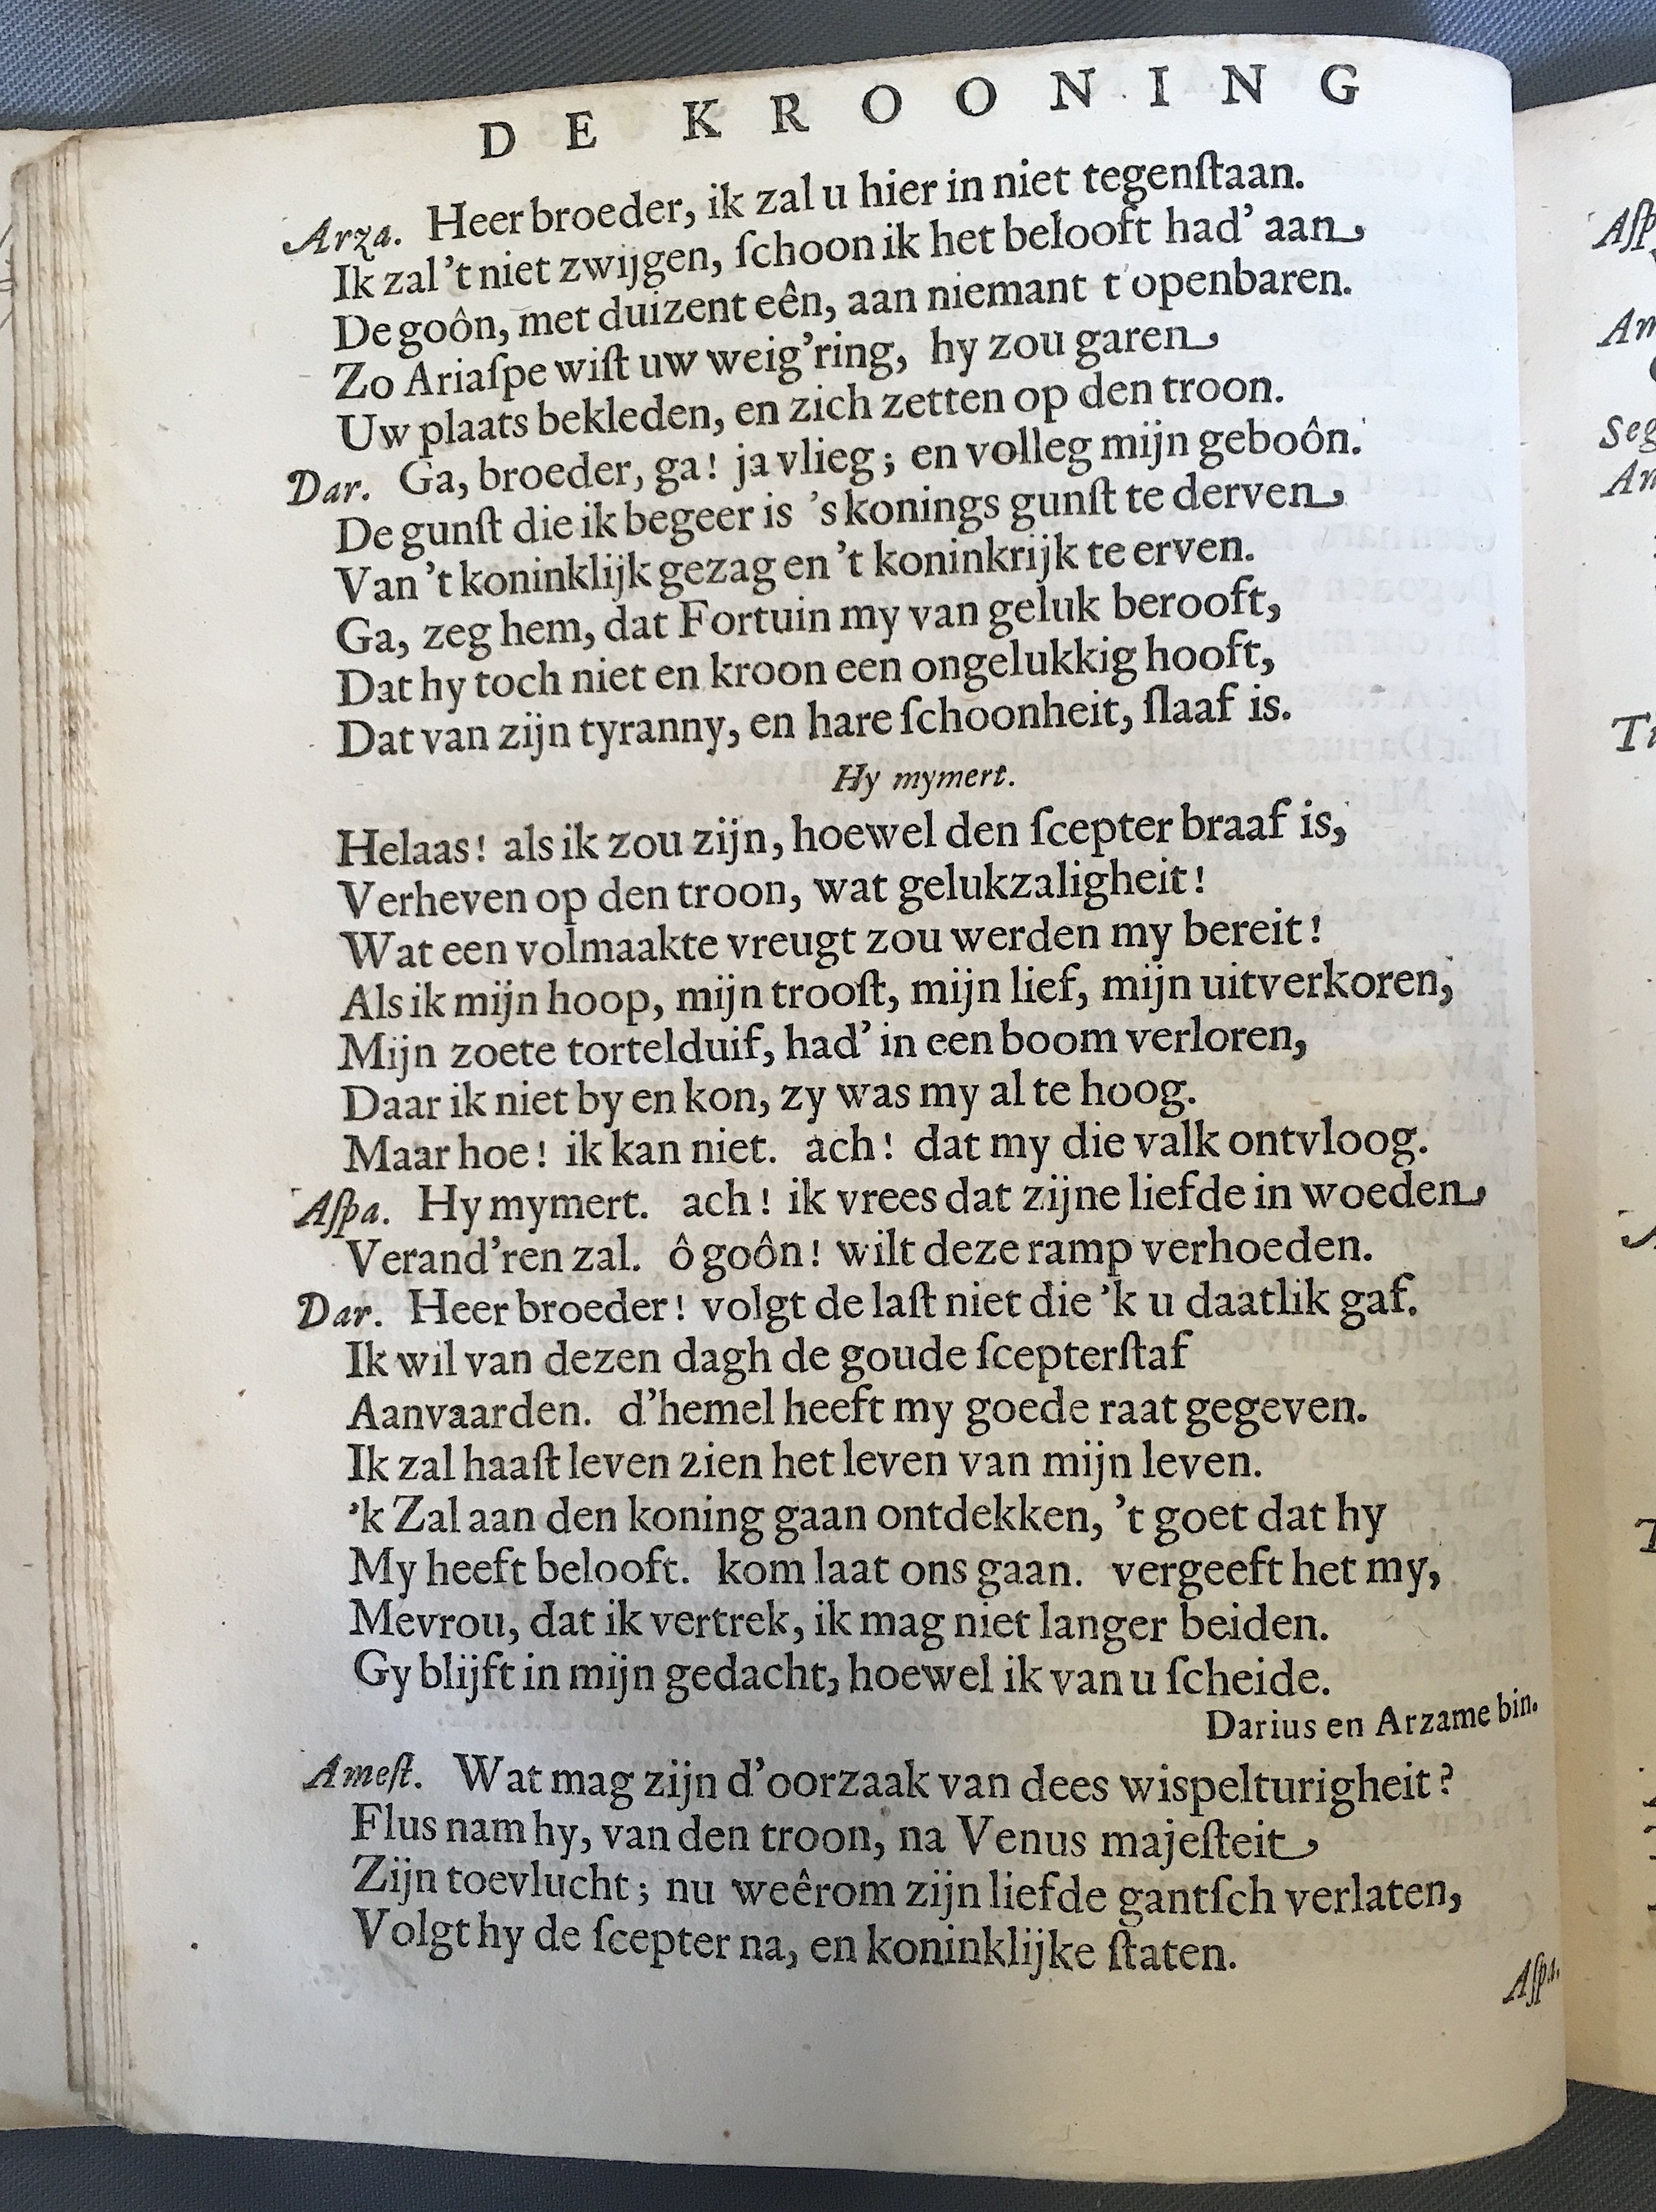 DE KROONING
Arza. Heer broeder, ik zal u hier in niet tegenſtaan.
Ik zal 't niet zwijgen, ſchoon ik het belooft had' aan
De goôn, met duizent eên, aan niemant t openbaren.
Zo Ariaſpe wiſt uw weig'ring, hy zou garen
Uw plaats bekleden, en zich zetten op den troon.
Dar. Ga, broeder, ga! ja vlieg; en volleg mijn geboôn.
De gunſt die ik begeer is 's konings gunſt te derven
Van 't koninklijk gezag en 't koninkrijk te erven.
Ga, zeg hem, dat Fortuin my van geluk berooft,
Dat hy toch niet en kroon een ongelukkig hooft,
Dat van zijn tyranny, en hare ſchoonheit, ſlaaf is.
Hy mymert.
Helaas! als ik zou zijn, hoewel den ſcepter braaf is,
Verheven op den troon, wat gelukzaligheit!
Wat een volmaakte vreugt zou werden my bereit!
Als ik mijn hoop, mijn trooſt, mijn lief, mijn uitverkoren,
Mijn zoete tortelduif, had' in een boom verloren,
Daar ik niet by en kon, zy was my al te hoog.
Maar hoe! ik kan niet. ach! dat my die valk ontvloog.
Aſpa. Hy mymert. ach! ik vrees dat zijne liefde in woeden
Verand'ren zal. ô goôn! wilt deze ramp verhoeden.
Dar. Heer broeder! volgt de laſt niet die 'k u daatlik gaf.
Ik wil van dezen dagh de goude ſcepterſtaf
Aanvaarden. d'hemel heeft my goede raat gegeven.
Ik zal haaſt leven zien het leven van mijn leven.
'k Zal aan den koning gaan ontdekken, 't goet dat hy
My heeft belooft. kom laat ons gaan. vergeeft het my,
Mevrou, dat ik vertrek, ik mag niet langer beiden.
Gy blijft in mijn gedacht, hoewel ik van u ſcheide.
Darius en Arzame bin.
Ameſt. Wat mag zijn d'oorzaak van dees wispelturigheit?
Flus nam hy, van den troon, na Venus majeſteit
Zijn toevlucht; nu weêrom zijn liefde gantſch verlaten,
Volgt hy de ſcepter na, en koninklijke ſtaten.
Aſpa.